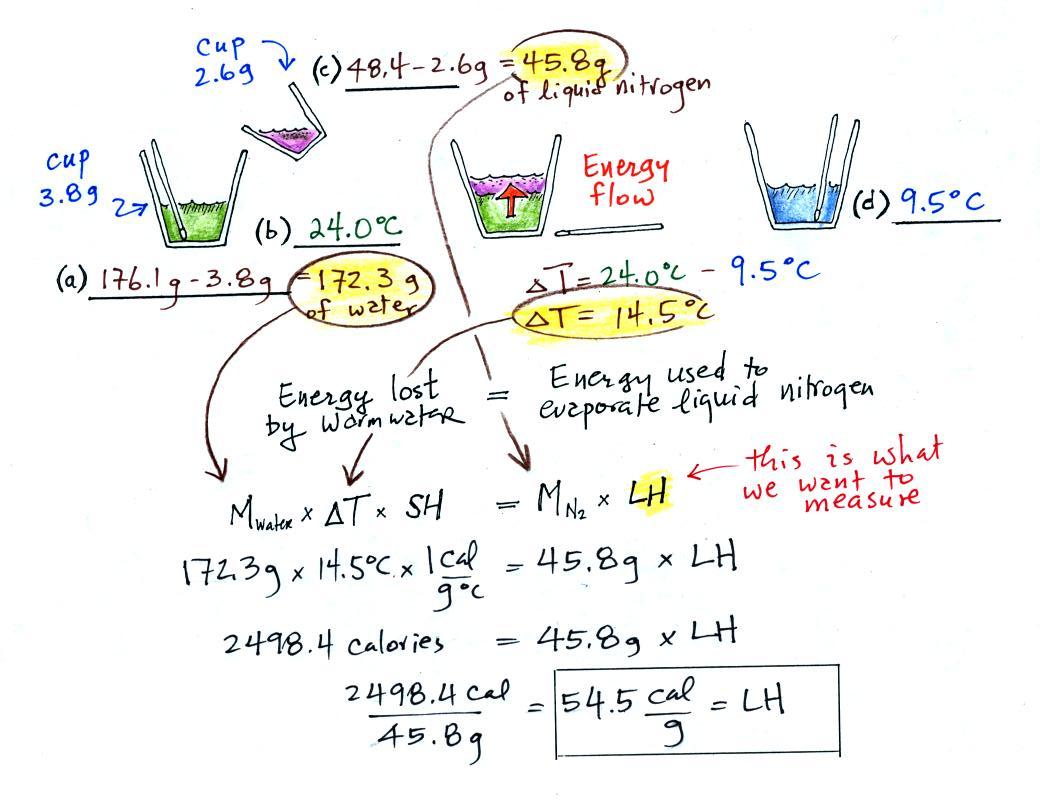 cup
2.6g
(c) 48.4-2.6g = 45.8g
of liquid nitrogen
cup
3.8g
(b) 24.0°C
(a) 176.1g - 3.8g = 172.3 g
of water
Energy
flow
(d) 9.5°C
ΔT = 24.0°C - 9.5°C
ΔT = 14.5°C
Energy lost
by warm water
=
Energy used to
evaporate liquid nitrogen
this is what
we want to
measure
Mwater x ΔT x SH = MN2 x LH
172.3g x 14.5°C x 1 cal/g°C = 45.8g x LH
2498.4 calories = 45.8g x LH
2498.4 cal/45.8g = 54.5 cal/g = LH